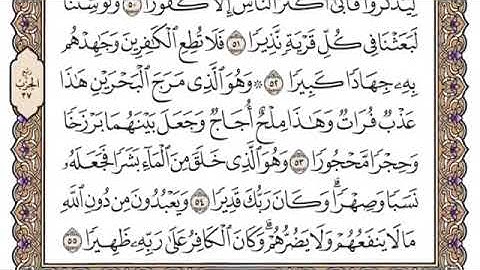 لِيَذَّكَّرُوا۟ فَأَبَىٰٓ أَكْثَرُ ٱلنَّاسِ إِلَّا كُفُورًا ۝٥٠ وَلَوْ شِئْنَا
لَبَعَثْنَا فِى كُلِّ قَرْيَةٍ نَّذِيرًا ۝٥١ فَلَا تُطِعِ ٱلْكَـٰفِرِينَ وَجَـٰهِدْهُم
بِهِۦ جِهَادًا كَبِيرًا ۝٥٢ ۞ وَهُوَ ٱلَّذِى مَرَجَ ٱلْبَحْرَيْنِ هَـٰذَا
عَذْبٌ فُرَاتٌ وَهَـٰذَا مِلْحٌ أُجَاجٌ وَجَعَلَ بَيْنَهُمَا بَرْزَخًا
وَحِجْرًا مَّحْجُورًا ۝٥٣ وَهُوَ ٱلَّذِى خَلَقَ مِنَ ٱلْمَآءِ بَشَرًا فَجَعَلَهُۥ
نَسَبًا وَصِهْرًا ۗ وَكَانَ رَبُّكَ قَدِيرًا ۝٥٤ وَيَعْبُدُونَ مِن دُونِ ٱللَّهِ
مَا لَا يَنفَعُهُمْ وَلَا يَضُرُّهُمْ ۗ وَكَانَ ٱلْكَافِرُ عَلَىٰ رَبِّهِۦ ظَهِيرًا ۝٥٥
ربع
الحزب
٣٧